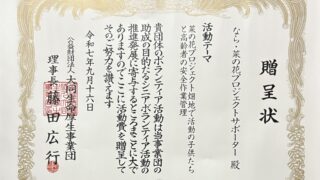 贈呈状
なら・菜の花プロジェクトサポーター 殿
活動テーマ
菜の花プロジェクト畑地で活動の子供たち
と高齢者の安全作業管理
貴団体のボランティア活動は当事業団の
助成の目的たるシニアボランティア活動の
推進発展に寄与するところまことに大で
ありますのでここに活動費を贈呈して
そのご努力を讃えます
令和七年九月十六日
公益財団法人 大同生命厚生事業団
理事長 藤田広行